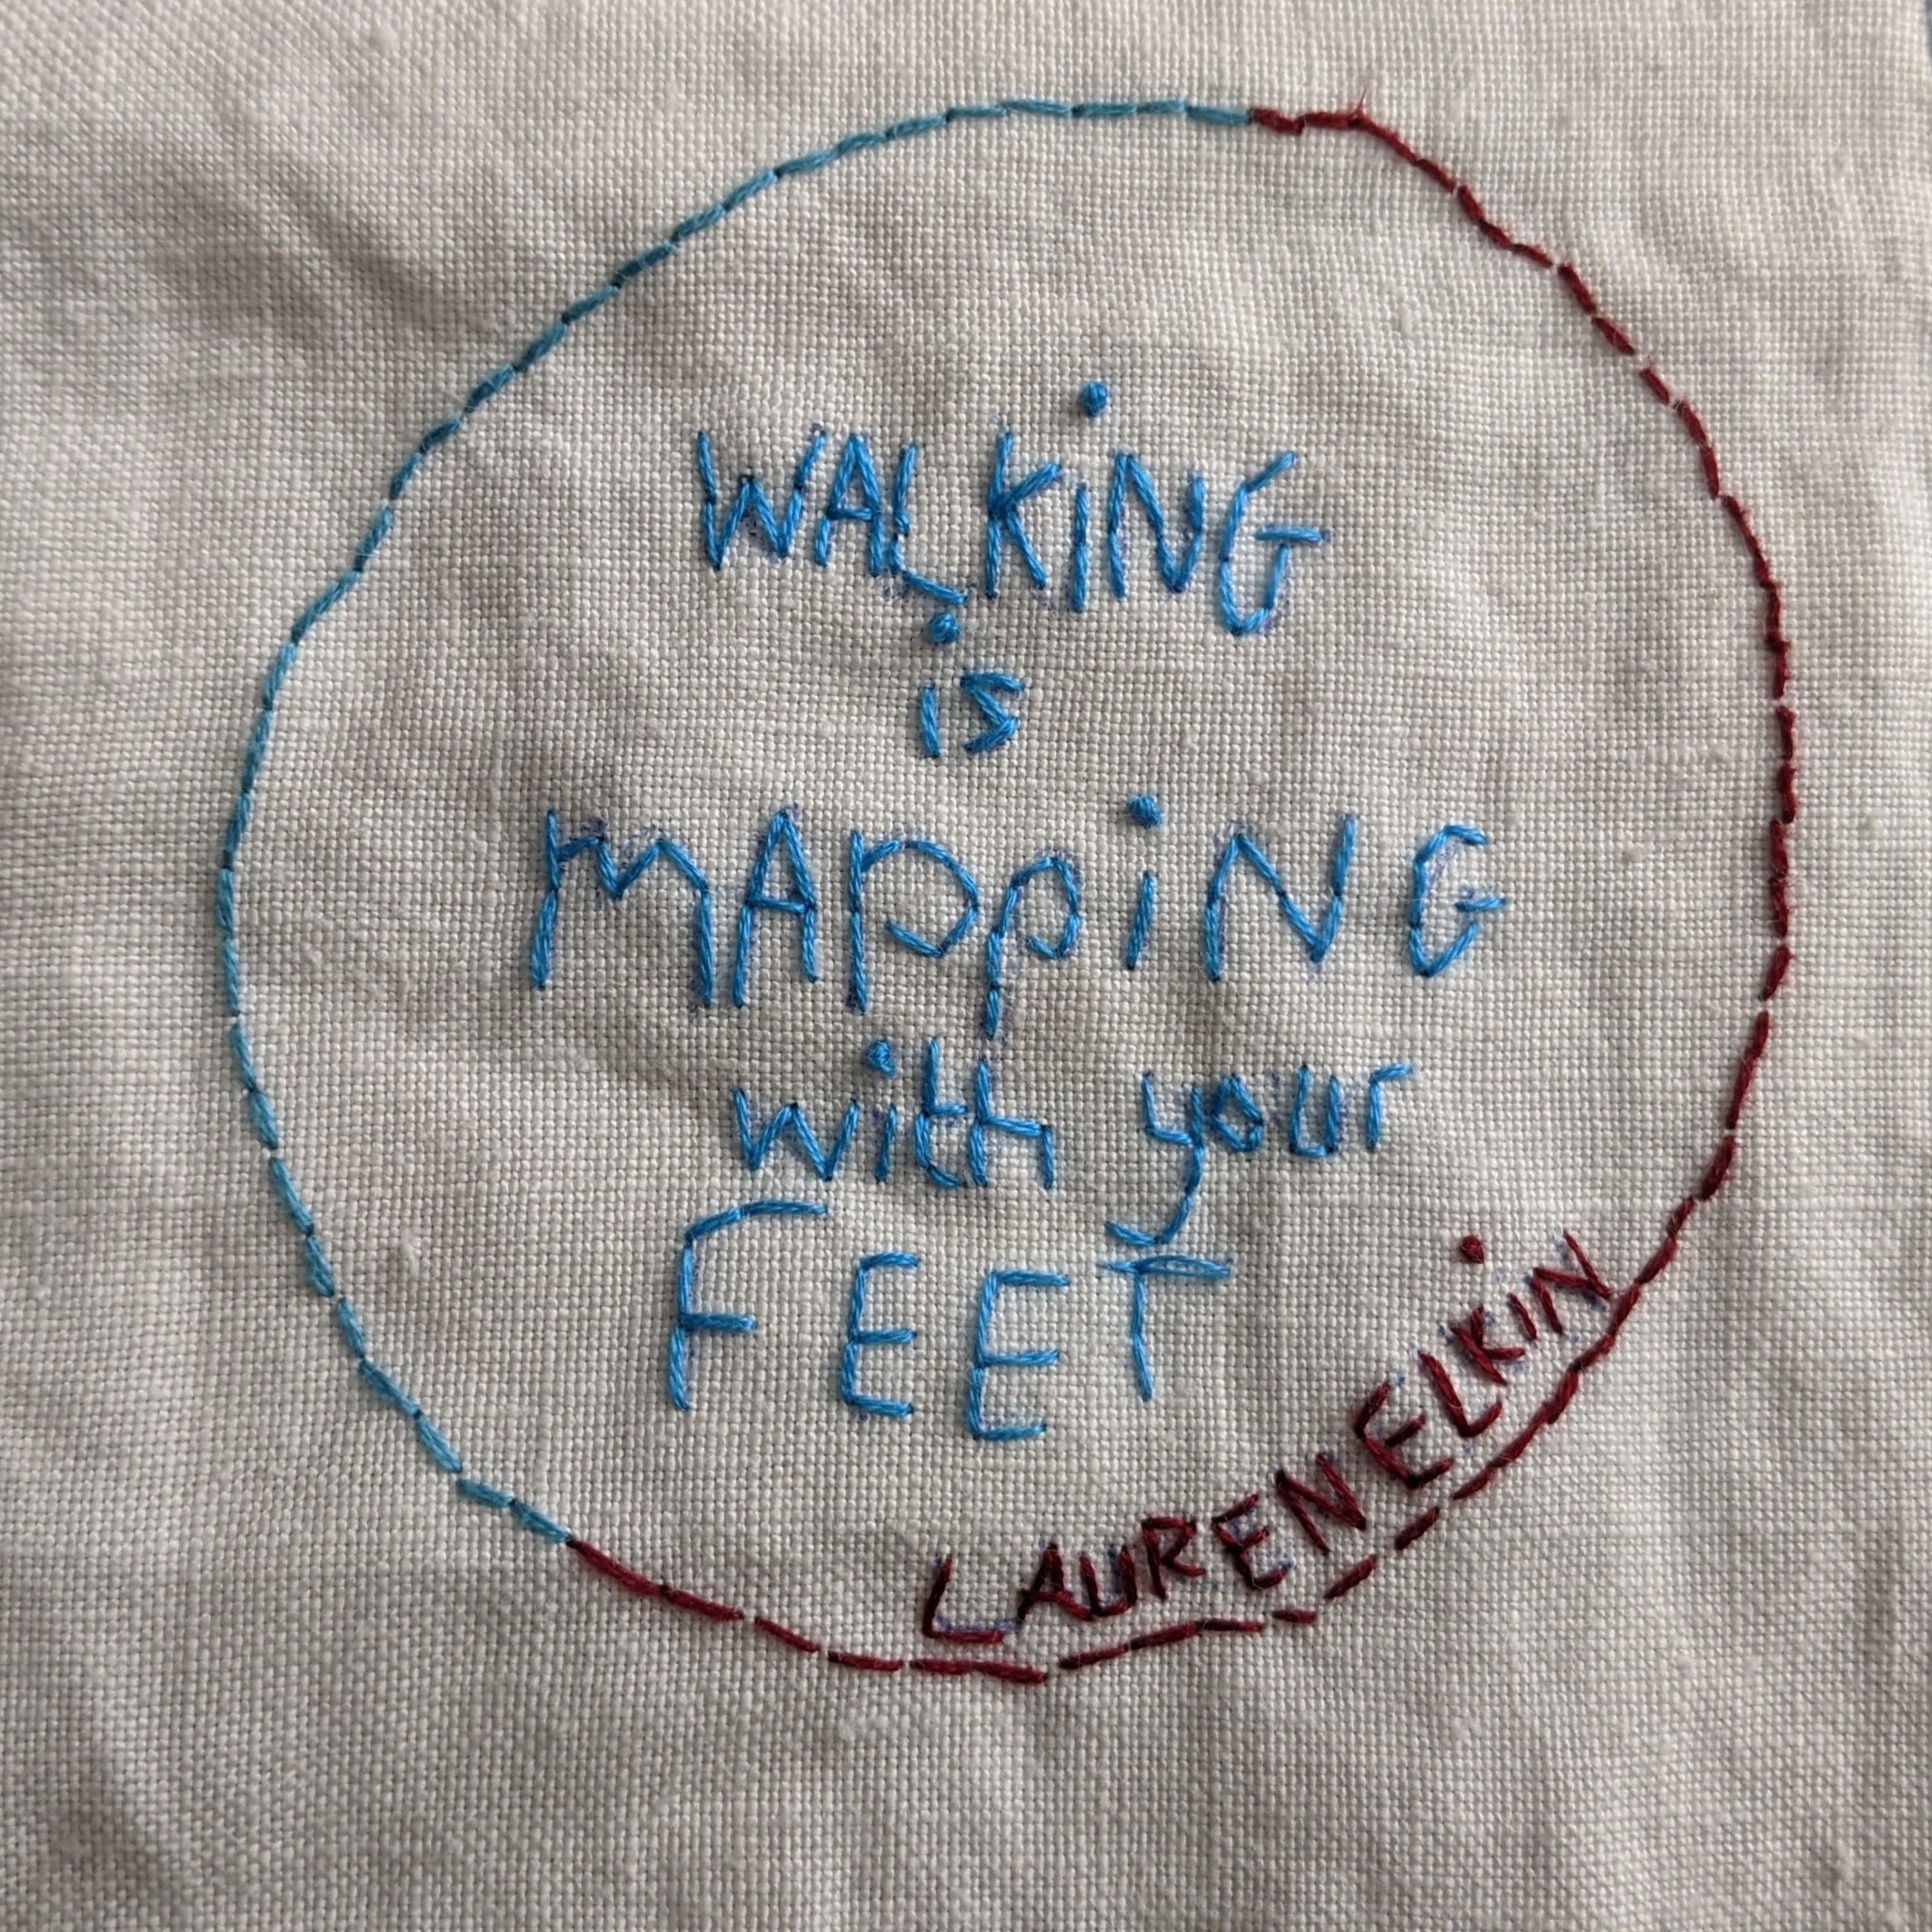 WALKiNG
is
MAPPiNG
with your
FEET
LAUREN ELKiN